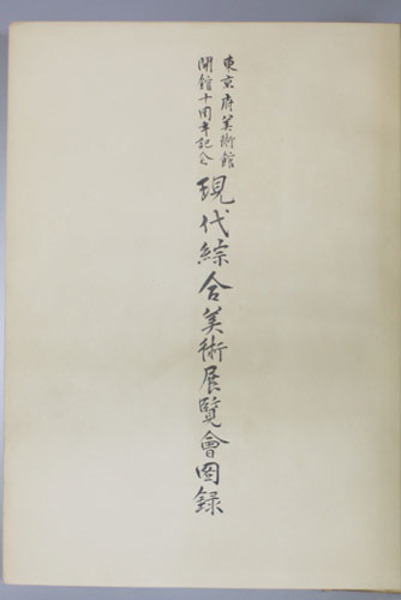 東京府美術館
開館十周年記念
現代綜合美術展覽會圖録